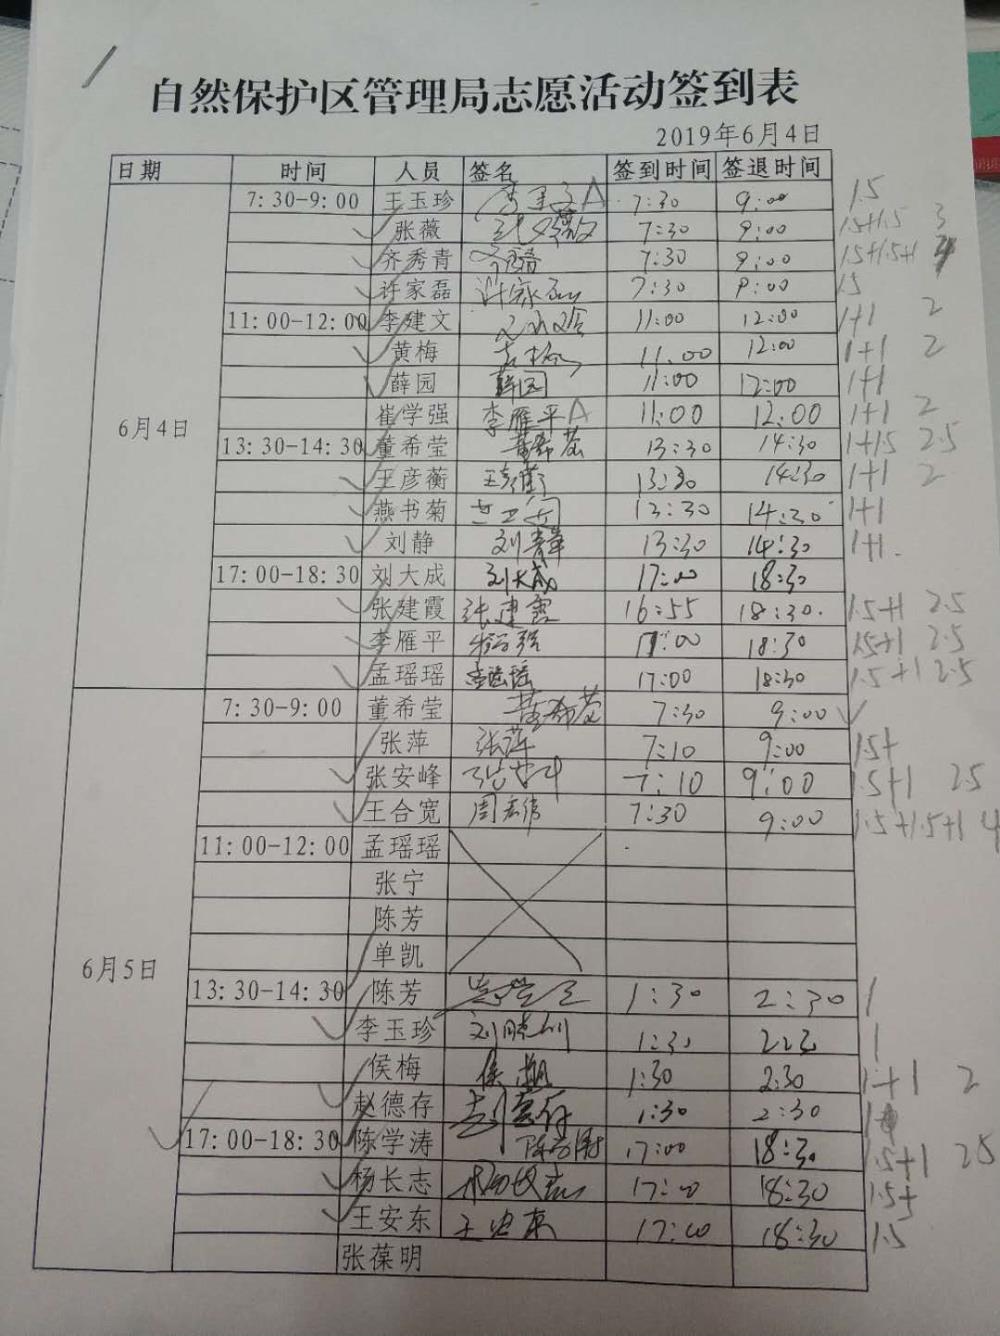 自然保护区管理局志愿活动签到表
2019年6月4日
日期 时间 人员 签名 签到时间 签退时间
7:30-9:00 王玉珍 7:30 9:00 1.5
张薇 7:30 9:00 1.5+1.5 3
齐秀青 7:30 9:00 1.5+1.5+1 4
许家磊 许家磊 7:30 9:00 1.5
11:00-12:00 李建文 11:00 12:00 1+1 2
黄梅 黄梅 11:00 12:00 1+1 2
薛园 薛园 11:00 12:00 1+1
崔学强 李雁平A 11:00 12:00 1+1 2
6月4日
13:30-14:30 董希莹 董希莹 13:30 14:30 1+1.5 2.5
王彦蘅 王彦蘅 13:30 14:30 1+1 2
燕书菊 13:30 14:30 1+1
刘静 刘静 13:30 14:30 1+1
17:00-18:30 刘大成 刘大成 17:00 18:30
张建霞 张建霞 16:55 18:30 1.5+1 2.5
李雁平 17:00 18:30 1.5+1 2.5
孟瑶瑶 孟瑶瑶 17:00 18:30 1.5+1 2.5
7:30-9:00 董希莹 董希莹 7:30 9:00
张萍 张萍 7:10 9:00 1.5+
张安峰 7:10 9:00 1.5+1 2.5
王合宽 周宏伟 7:30 9:00 1.5+1.5+1 4
11:00-12:00 孟瑶瑶
张宁
陈芳
单凯
6月5日
13:30-14:30 陈芳 1:30 2:30 1
李玉珍 1:30 1
侯梅 1:30 2:30 1+1 2
赵德存 1:30 2:30
17:00-18:30 陈学涛 陈学涛 17:00 18:30 1.5+1 2.5
杨长志 杨长志 17:00 18:30 1.5+
王安东 王安东 17:00 18:30 1.5
张葆明